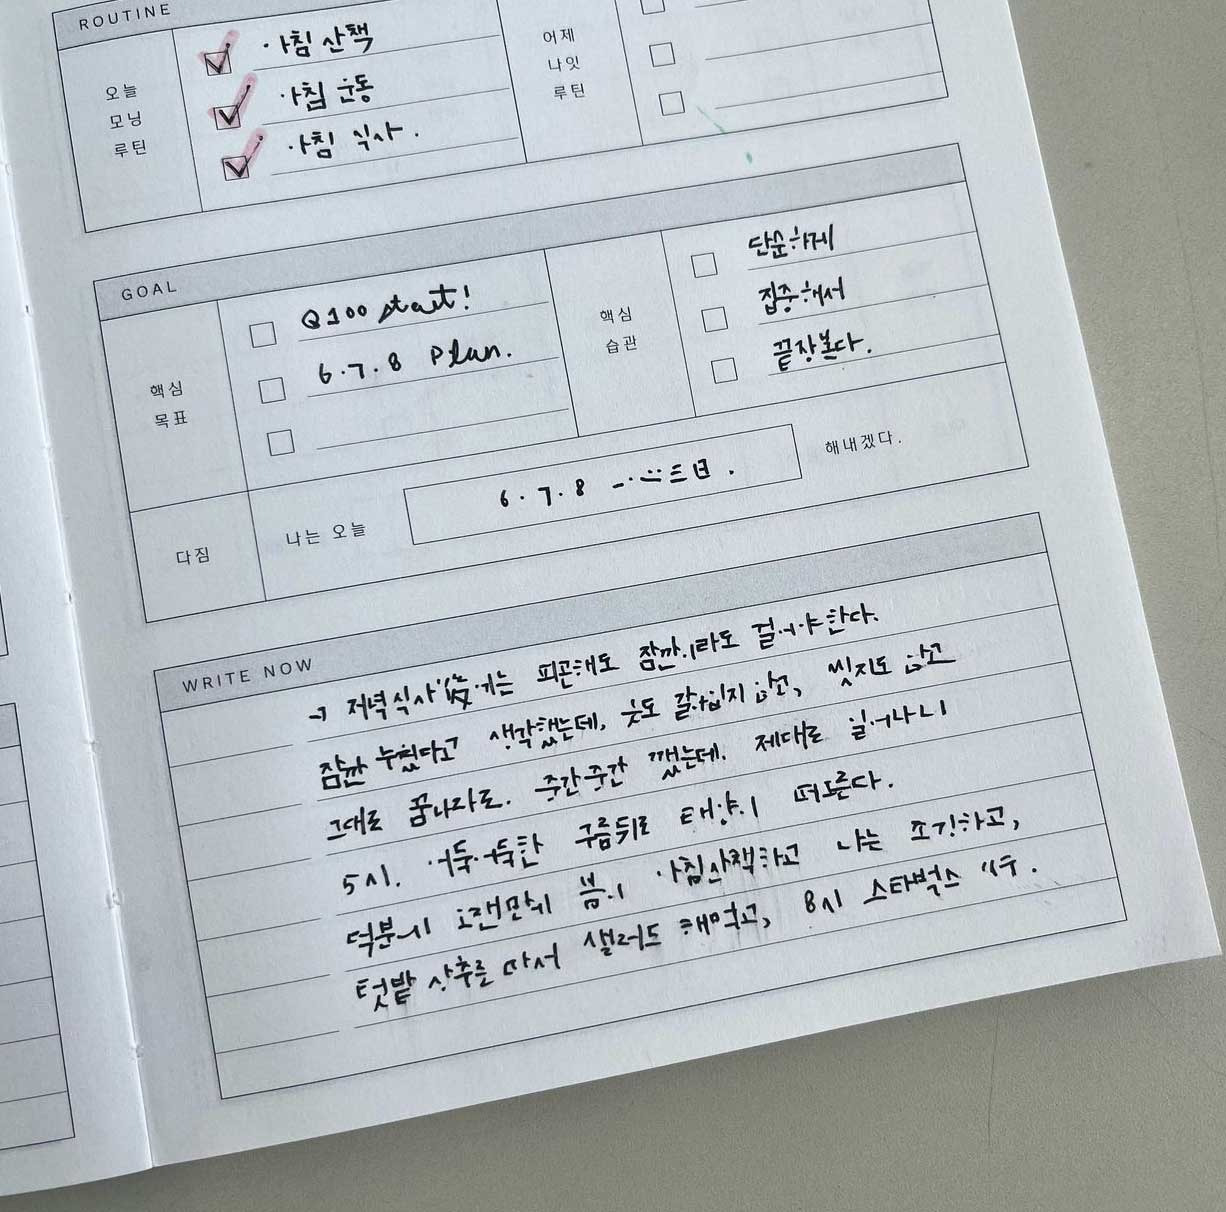 ROUTINE
오늘
모닝
루틴
아침 산책
아침 운동
아침 식사.
어제
나잇
루틴
GOAL
핵심
목표
Q100 start!
6.7.8 Plan.
핵심
습관
단순하게
집중해서
끝장본다.
다짐
나는 오늘
6.7.8
해내겠다.
WRITE NOW
→ 저녁식사後에는 피곤해도 잠깐이라도 걸어야한다.
잠깐 누웠다고 생각했는데, 옷도 갈아입지 않고, 씻지도 않고
그대로 꿈나라로. 중간중간 깼는데. 제대로 일어나니
5시. 어둑어둑한 구름뒤로 태양이 떠오른다.
덕분에 오랜만에 봄이 아침산책하고 나는 조깅하고,
텃밭 상추를 따서 샐러드 해먹고, 8시 스타벅스